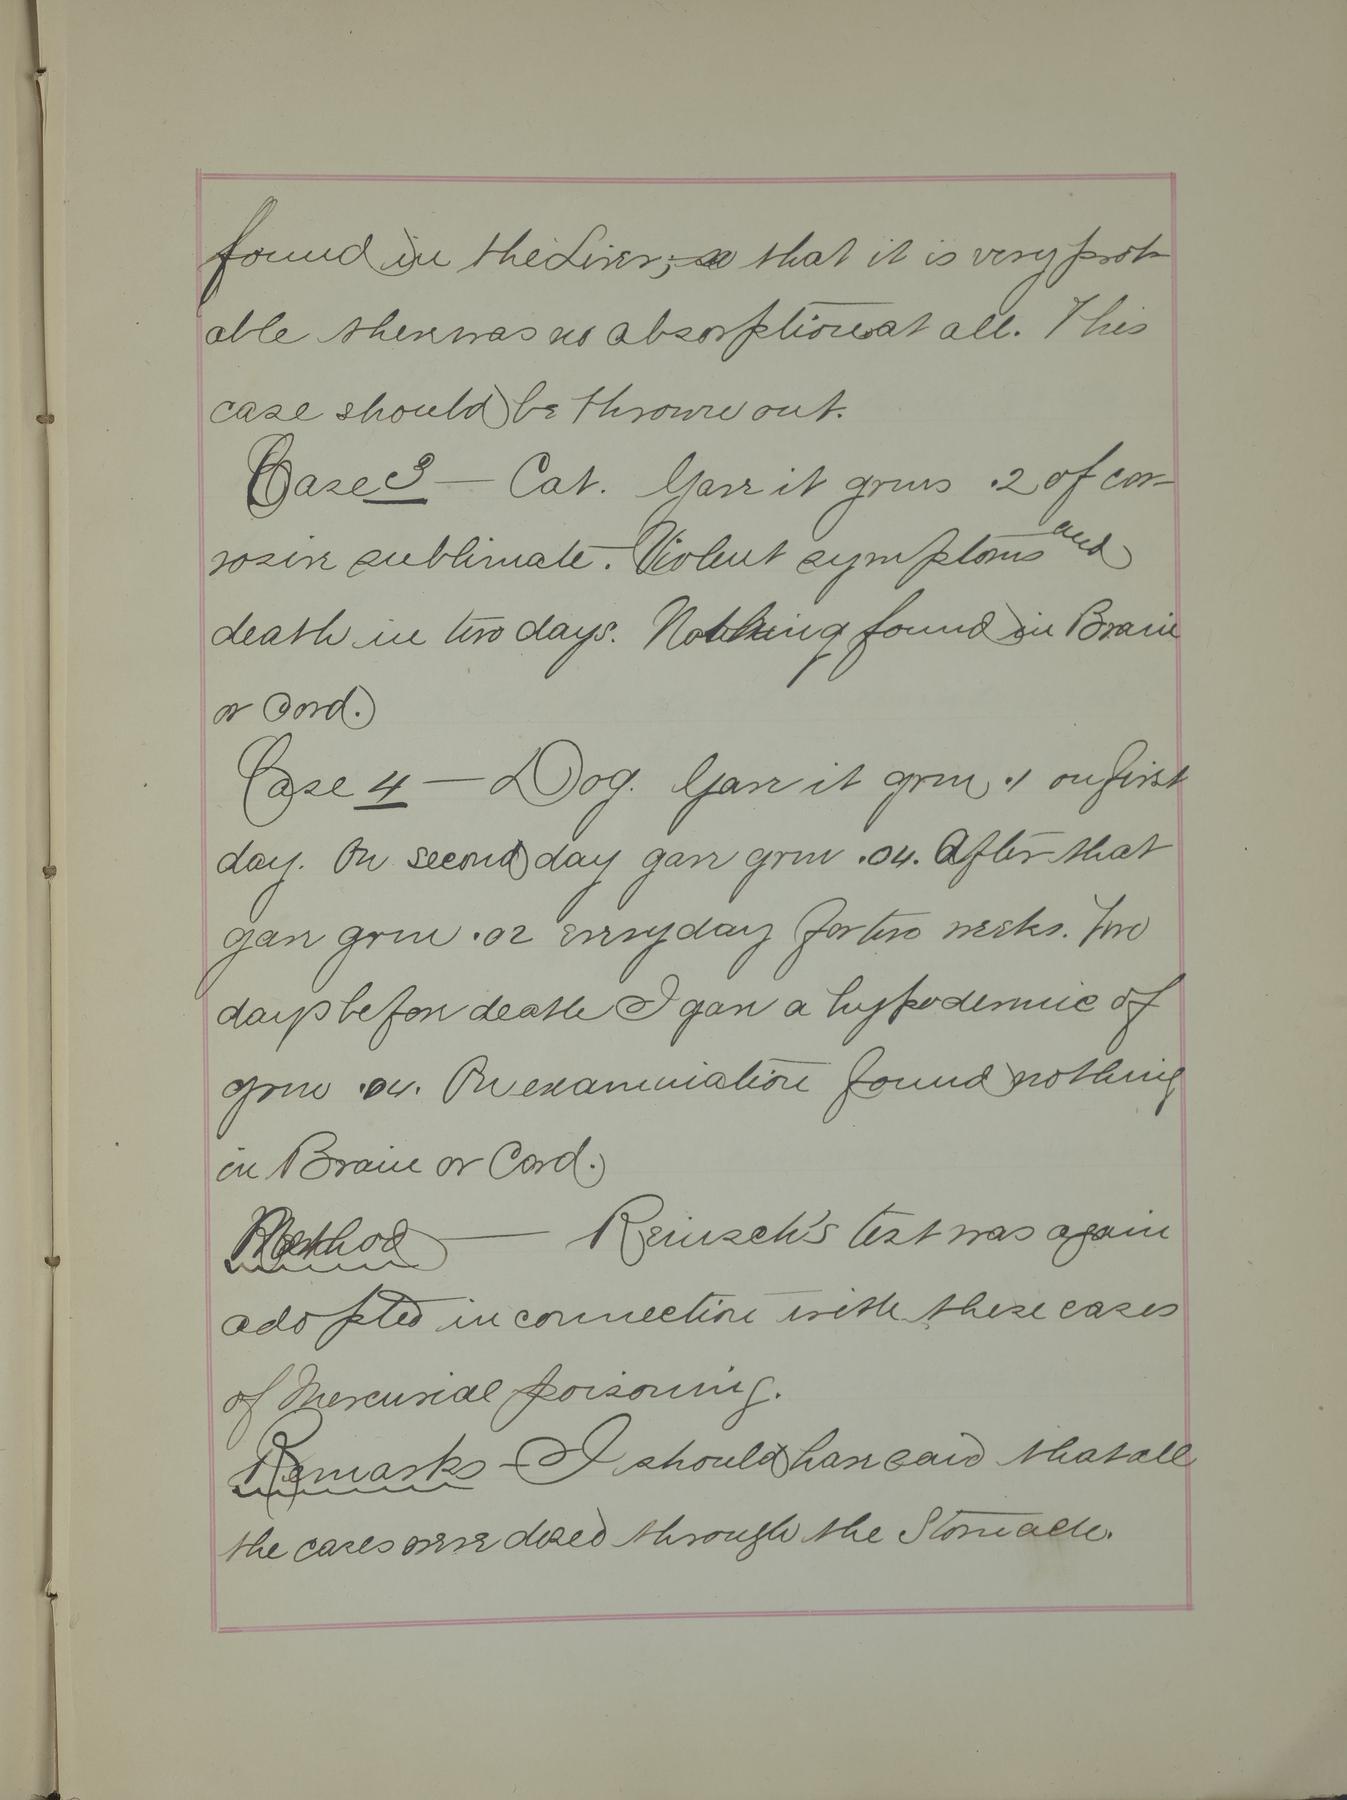 found in the Liver; so that it is very prob-
able there was no absorption at all. This
case should be thrown out.
Case 3 — Cat. Gave it grms .2 of cor-
rosive sublimate. Violent symptoms and
death in two days. Nothing found in Brain
or Cord.
Case 4 — Dog. Gave it grm .1 on first
day. On second day gave grm .04. After that
gave grm .02 every day for two weeks. Two
days before death I gave a hypodermic of
grm .04. On examination found nothing
in Brain or Cord.
Method — Reinsch's test was again
adopted in connection with these cases
of Mercurial poisoning.
Remarks — I should have said that all
the cases were dosed through the Stomach.